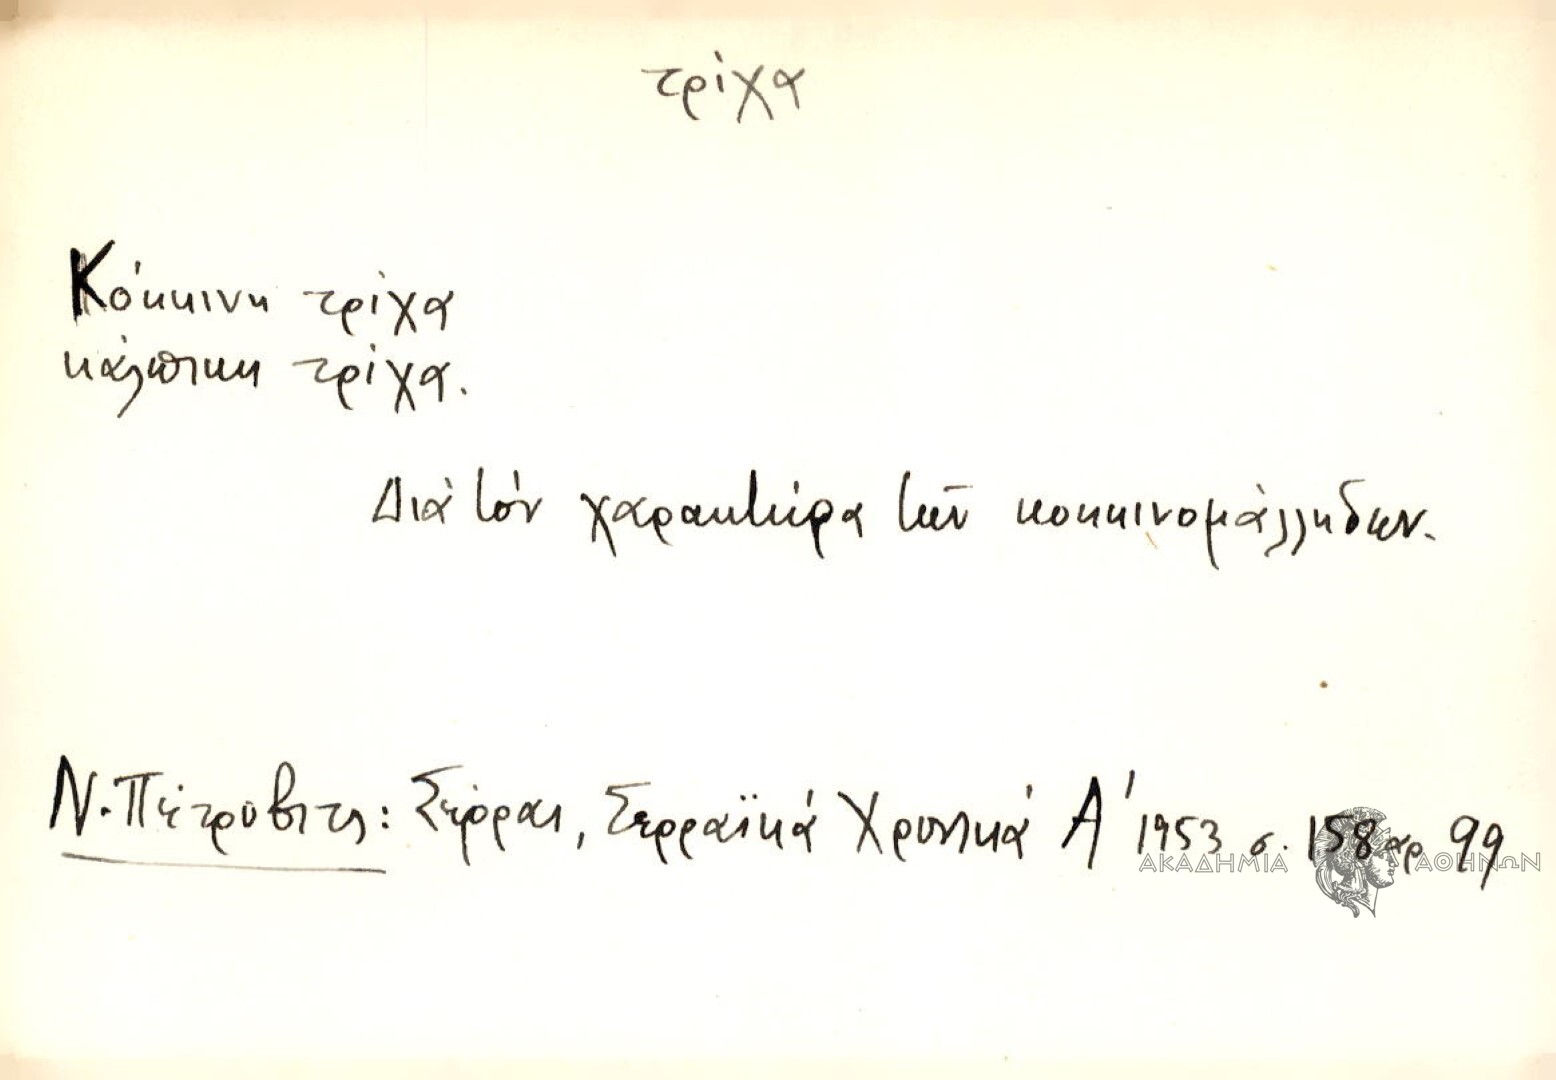 τρίχα
Κόκκινη τρίχα
κάλπικη τρίχα.
Διὰ τὸν χαρακτῆρα τῶν κοκκινομάλληδων.
Ν. Πέτροβιτς: Σέρραι, Σερραϊκά Χρονικά Α' 1953 σ. 158 αρ 99
ΑΚΑΔΗΜΙΑ ΑΘΗΝΩΝ